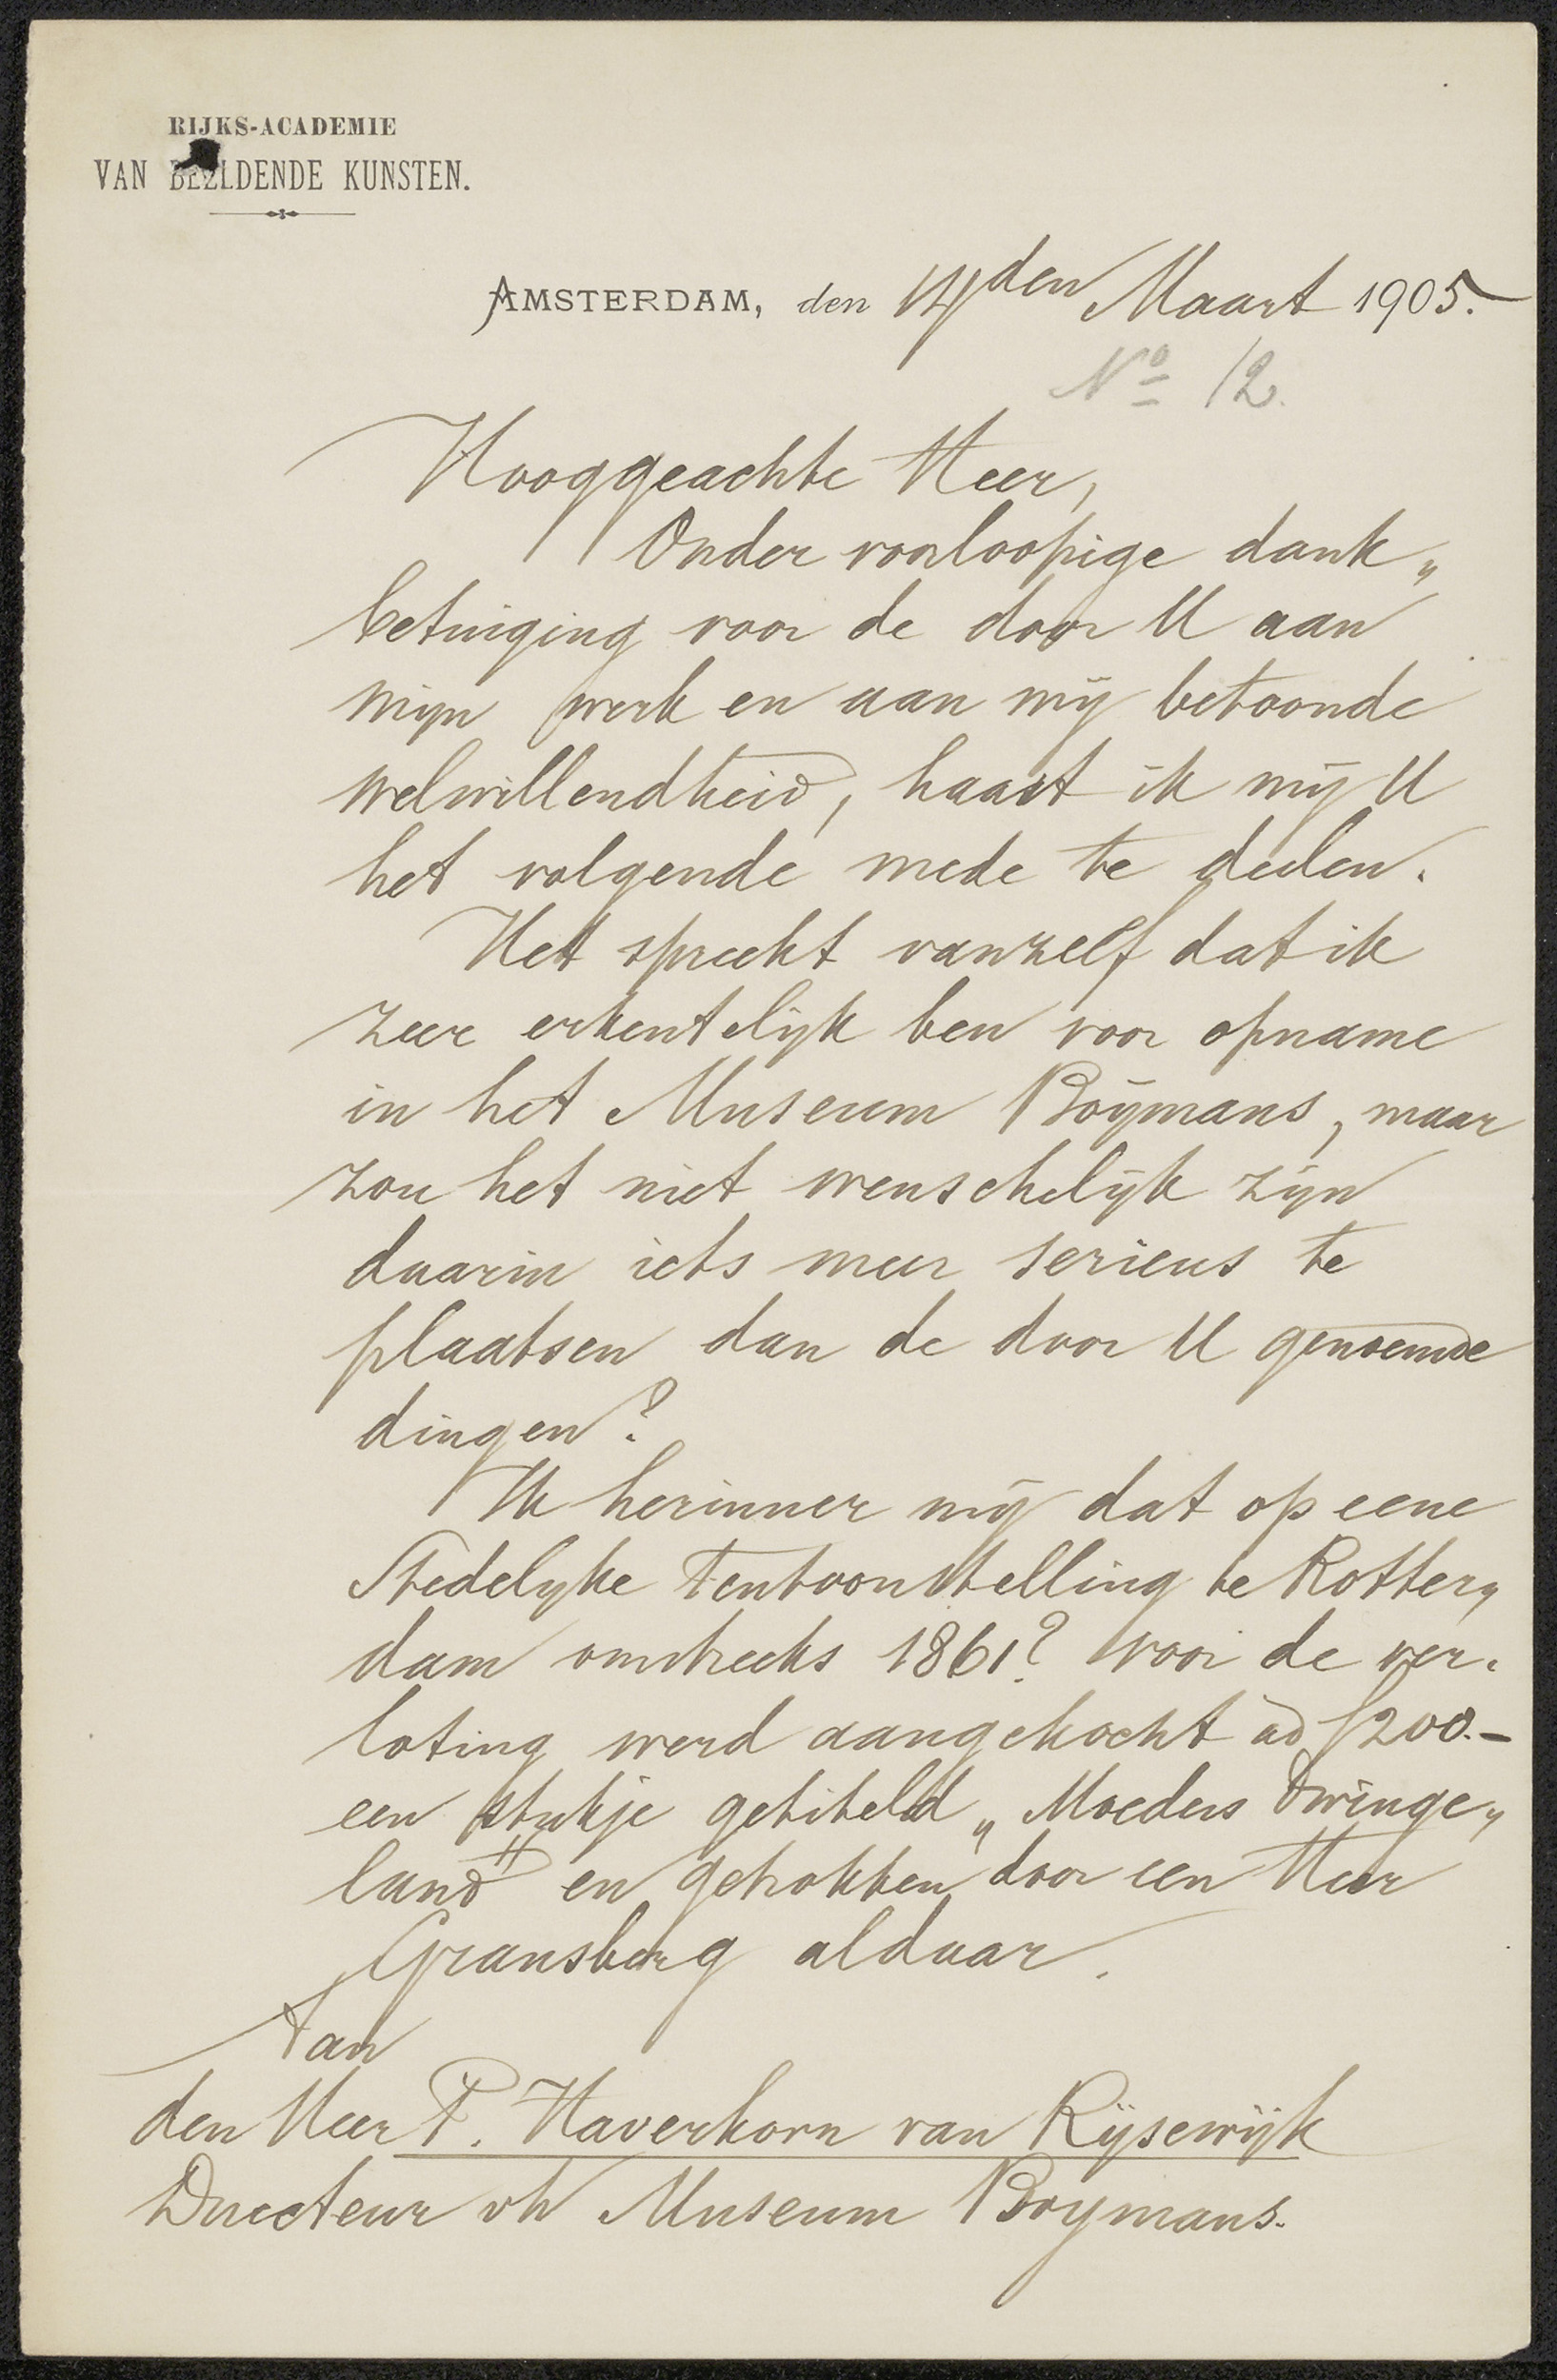 RIJKS-ACADEMIE
VAN BEELDENDE KUNSTEN.
AMSTERDAM, den 14den Maart 1905.
No 12.
Hooggeachte Heer,
Onder voorloopige dank„
betuiging voor de door U aan
mijn werk en aan mij betoonde
welwillendheid, haast ik mij U
het volgende mede te deelen.
Het spreekt vanzelf dat ik
zeer erkentelijk ben voor opname
in het Museum Boÿmans, maar
zou het niet wenschelijk zijn
daarin iets meer serieus te
plaatsen dan de door U genoemde
dingen?
Ik herinner mij dat op eene
Stedelijke Tentoonstelling te Rotter„
dam omstreeks 1861? voor de ver-
loting werd aangekocht ad ƒ200.–
een stukje getiteld „Moeders dwinge„
land" en getrokken door een Heer
Gransberg aldaar.
Aan
den Heer P. Haverkorn van Rijsewijk
Directeur vh Museum Boymans.